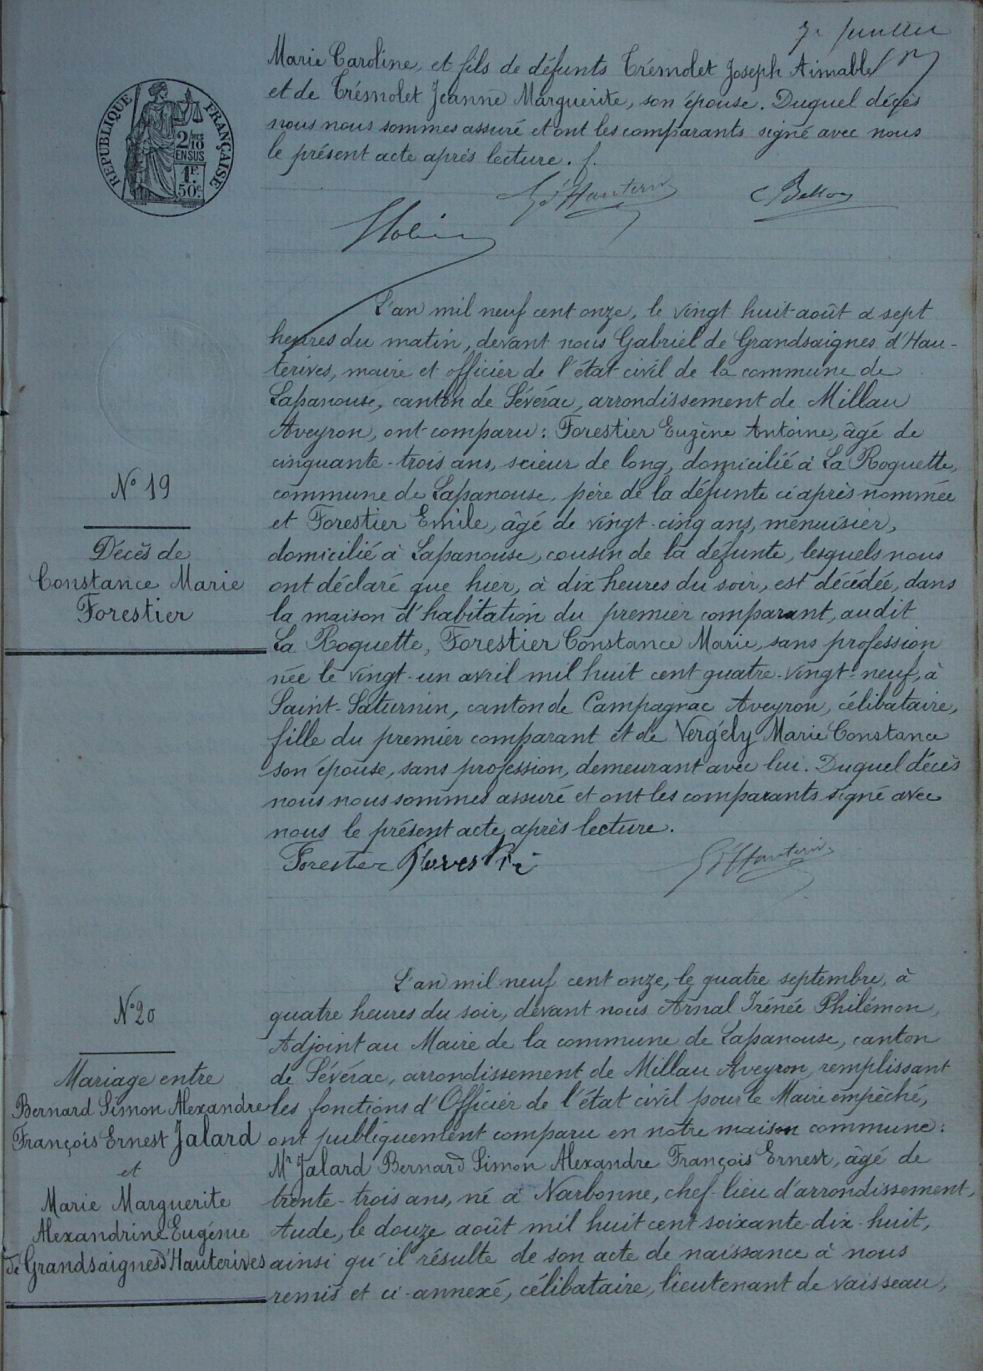 7e feuillet
Marie Caroline, et fils de défunts Trémolet Joseph Aimable
et de Trémolet Jeanne Marguerite, son épouse. Duquel décès
nous nous sommes assuré et ont les comparants signé avec nous
le présent acte après lecture.
RÉPUBLIQUE FRANÇAISE
2/10
EN SUS
1F.
50c.
L'an mil neuf cent onze, le vingt huit août à sept
heures du matin, devant nous Gabriel de Grandsaignes d'Hau-
terives, maire et officier de l'état civil de la commune de
Lapanouse, canton de Sévérac, arrondissement de Millau
Aveyron, ont comparu: Forestier Eugène Antoine, âgé de
cinquante-trois ans, scieur de long, domicilié à La Roquette,
commune de Lapanouse, père de la défunte ci après nommée
et Forestier Emile, âgé de vingt-cinq ans, menuisier,
domicilié à Lapanouse, cousin de la défunte, lesquels nous
ont déclaré que hier, à dix heures du soir, est décédée, dans
la maison d'habitation du premier comparant, audit
La Roquette, Forestier Constance Marie, sans profession
née le vingt-un avril mil huit cent quatre-vingt-neuf, à
Saint-Saturnin, canton de Campagnac Aveyron, célibataire,
fille du premier comparant et de Vergély Marie Constance
son épouse, sans profession, demeurant avec lui. Duquel décès
nous nous sommes assuré et ont les comparants signé avec
nous le présent acte après lecture.
Forestier
N° 19
Décès de
Constance Marie
Forestier
L'an mil neuf cent onze, le quatre septembre, à
quatre heures du soir, devant nous Arnal Irénée Philémon,
Adjoint au Maire de la commune de Lapanouse, canton
de Sévérac, arrondissement de Millau Aveyron, remplissant
les fonctions d'Officier de l'état civil pour le Maire empêché,
ont publiquement comparu en notre maison commune:
Mr Jalard Bernard Simon Alexandre François Ernest, âgé de
trente-trois ans, né à Narbonne, chef-lieu d'arrondissement,
Aude, le douze août mil huit cent soixante-dix-huit,
ainsi qu'il résulte de son acte de naissance à nous
remis et ci-annexé, célibataire, lieutenant de vaisseau,
N° 20
Mariage entre
Bernard Simon Alexandre
François Ernest Jalard
et
Marie Marguerite
Alexandrine Eugénie
de Grandsaignes d'Hauterives